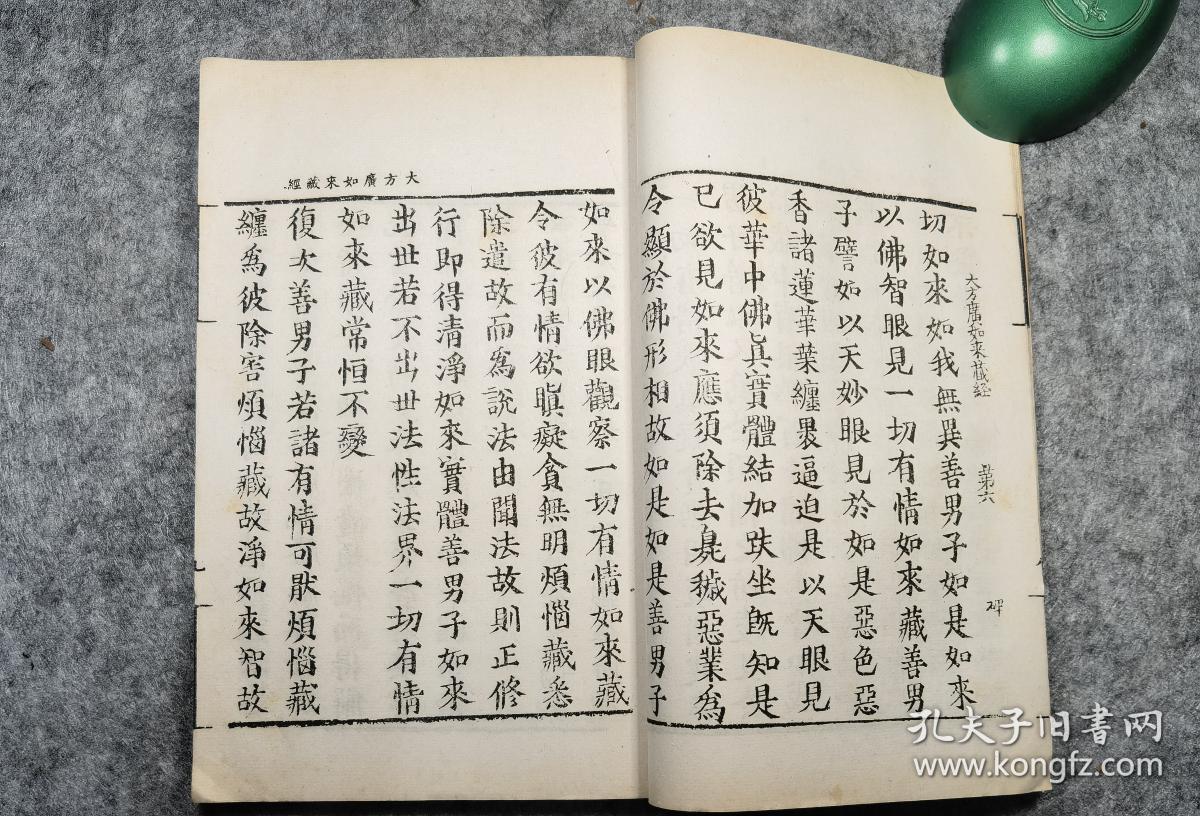 大方廣如來藏経
第六
切如來如我無異善男子如是如來
以佛智眼見一切有情如來藏善男
子譬如以天妙眼見於如是惡色惡
香諸蓮華葉纏褁逼迫是以天眼見
彼華中佛眞實體結加趺坐旣知是
已欲見如來應須除去臭穢惡業爲
令顯於佛形相故如是如是善男子
大方廣如來藏經
如來以佛眼觀察一切有情如來藏
令彼有情欲瞋癡貪無明煩惱藏悉
除遣故而爲說法由聞法故則正修
行即得清淨如來實體善男子如來
出世若不出世法性法界一切有情
如來藏常恒不變
復次善男子若諸有情可厭煩惱藏
纏爲彼除害煩惱藏故淨如來智故
孔夫子旧书网
www.kongfz.com